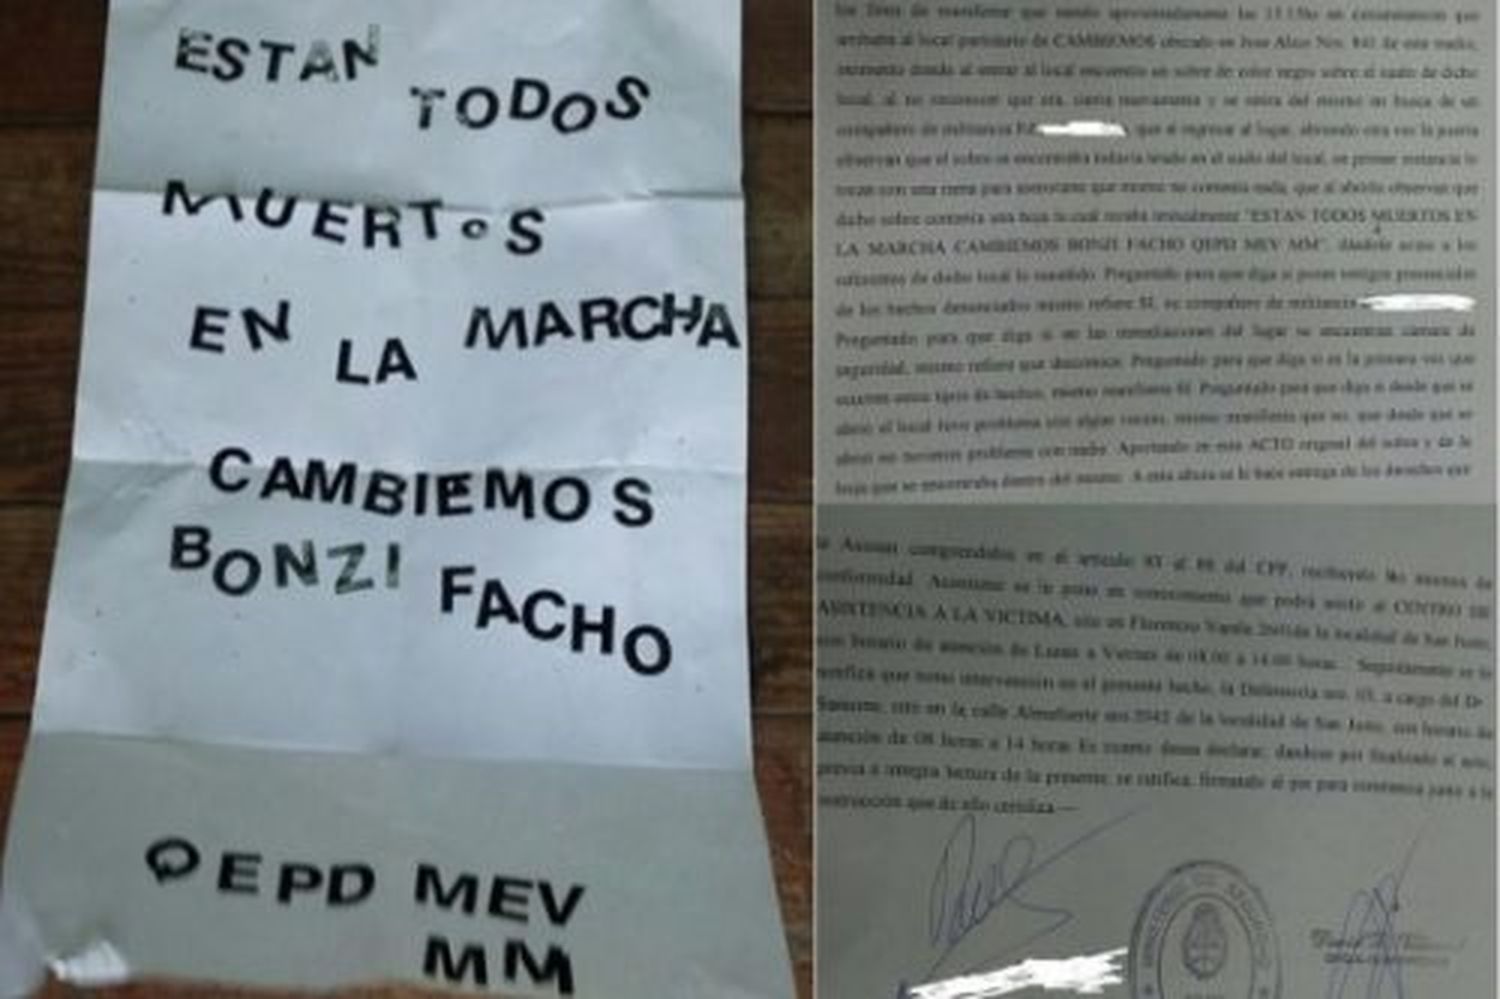 ESTAN
TODOS
MUERToS
EN LA MARCHA
CAMBIEMOS
BONZI FACHO
QEPD MEV
MM
los fines de manifestar que siendo aproximadamente las en circunstancias que
arribaba al local partidario de CAMBIEMOS ubicado en de este medio,
momento donde al entrar al local encuentra un sobre de color negro sobre el suelo de dicho
local, al no reconocer que era, cierra nuevamente y se retira del mismo en busca de un
compañero de militancia que al ingresar al lugar, abriendo otra vez la puerta
observan que el sobre se encontraba todavía tirado en el suelo del local, en primer instancia lo
tocan con una rama para asegurarse que mismo no contenía nada, que al abrirlo observan que
dicho sobre contenía una hoja la cual rezaba textualmente "ESTAN TODOS MUERTOS EN
LA MARCHA CAMBIEMOS BONZI FACHO QEPD MEV MM", dándole aviso a los
de dicho local lo sucedido. Preguntado para que diga si posee testigos presenciales
de los hechos denunciados mismo refiere SI, su compañero de militancia
Preguntado para que diga si en las inmediaciones del lugar se encuentran cámara de
seguridad, mismo refiere que desconoce. Preguntado para que diga si es la primera vez que
ocurren estos tipos de hechos, mismo manifiesta SI. Preguntado para que diga si desde que se
abrió el local tuvo problema con algún vecino, mismo manifiesta que no, que desde que se
abrió no tuvieron problema con nadie. Aportando en este ACTO original del sobre y de la
hoja que se encontraba dentro del mismo. A esta altura se le hace entrega de los derechos que
le Asisten comprendidos en el artículo 83 al 86 del CPP, recibiendo los mismos de
conformidad. Asimismo se le pone en conocimiento que podrá asistir al CENTRO DE
ASISTENCIA A LA VICTIMA, sito en Florencio Varela de la localidad de San Justo,
con horario de atención de Lunes a Viernes de 08:00 a 14:00 horas. Seguidamente se le
notifica que tomó intervención en el presente hecho, la a cargo del Dr
sito en la calle Almafuerte nro de la localidad de San Justo, con horario de
atención de 08 horas a 14 horas. Es cuanto desea declarar, dándose por finalizado el acto,
previa e íntegra lectura de la presente, se ratifica, firmando al pie para constancia junto a la
instrucción que de ello certifica.---